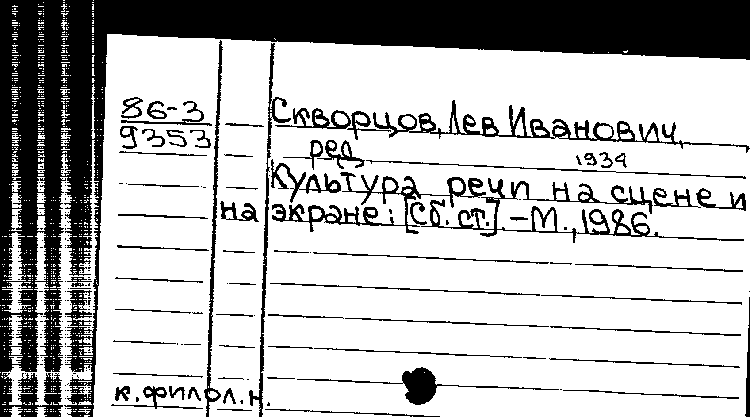 86-3 Скворцов, Лев Иванович,
9353 ред. 1934
Культура речи на сцене и
на экране: [Сб. ст.]. -М., 1986.
к.филол.н.